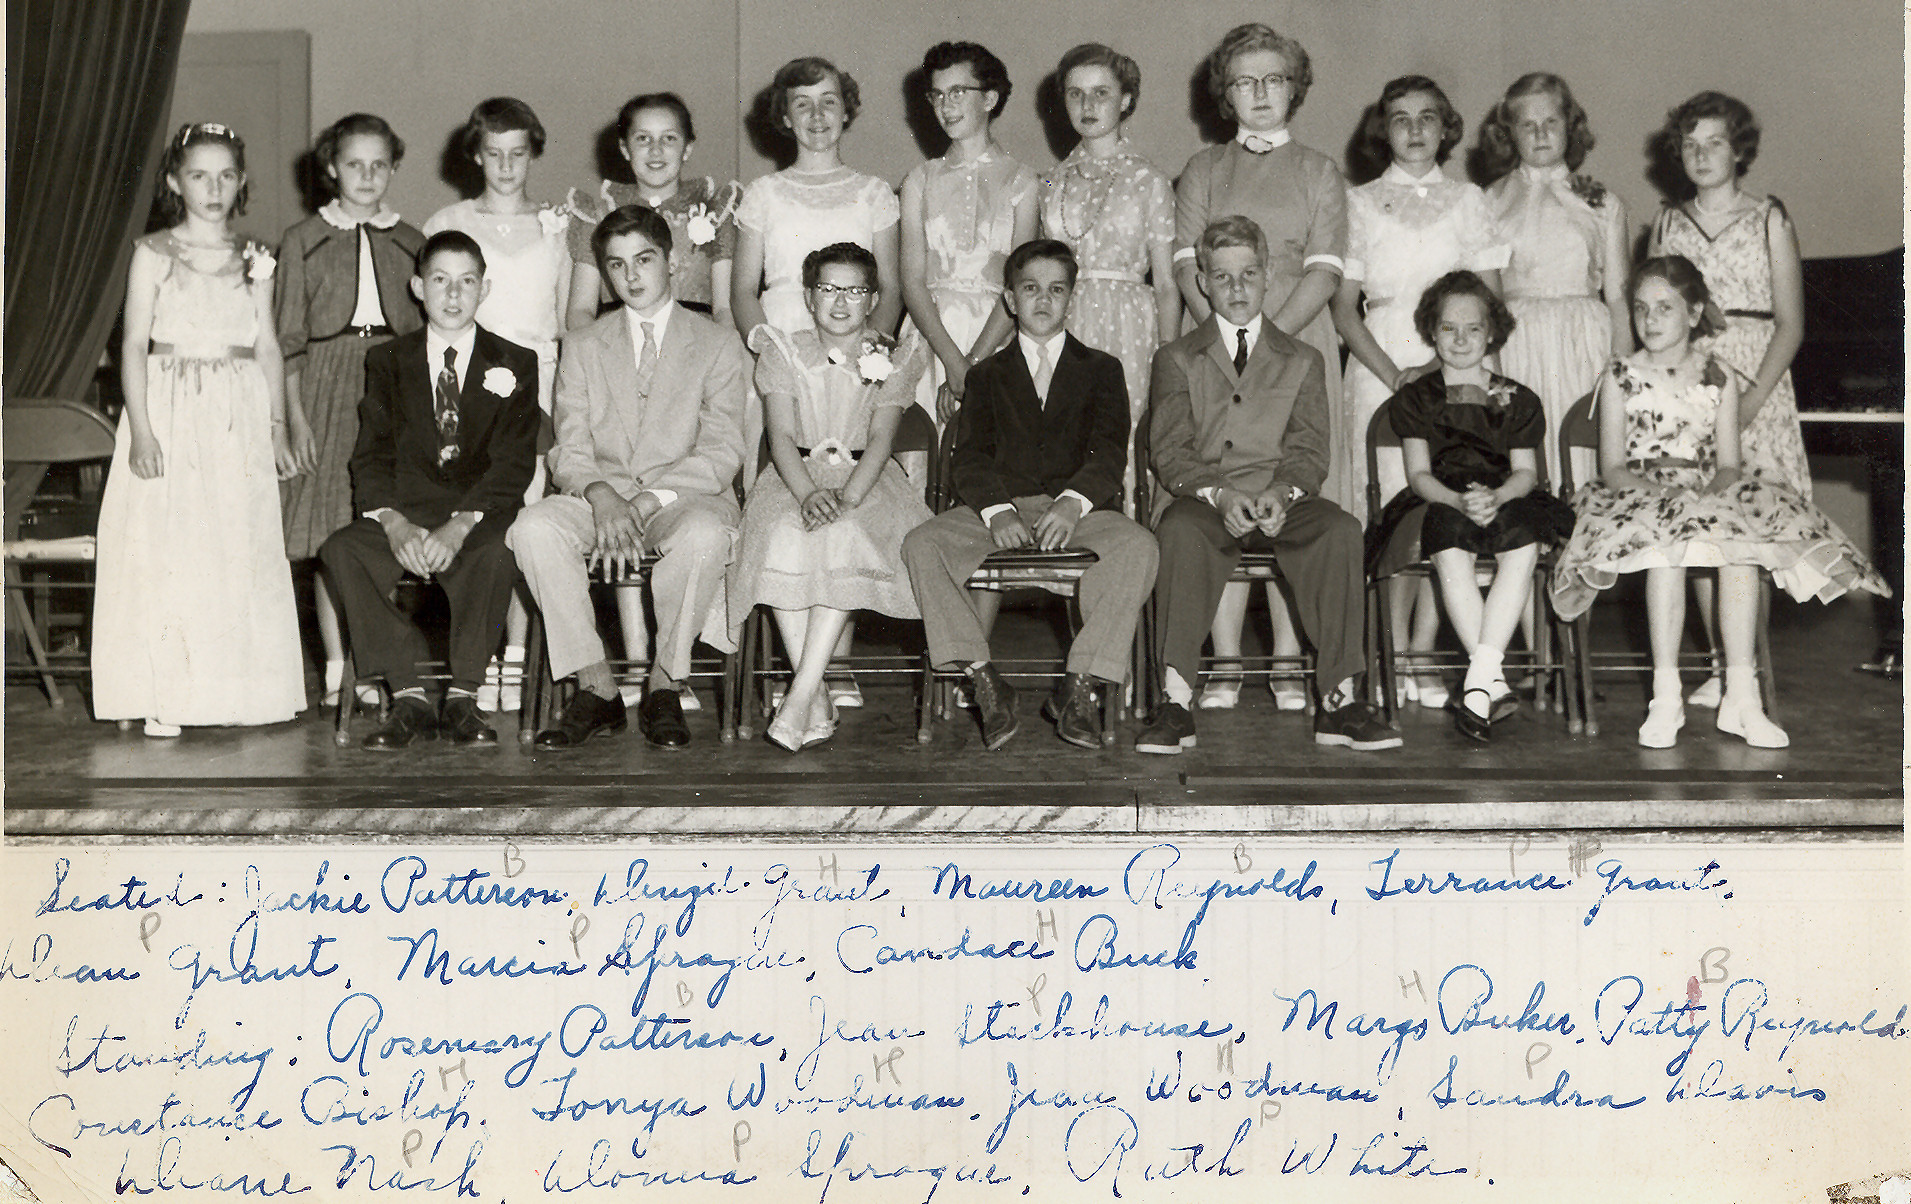 Seated: Jackie Patterson, Grant, Maureen Reynolds, Terrance Grant,
Dean Grant, Marcia Sprague, Candace Buck
Standing: Rosemary Patterson, Jean Stackhouse, Margo Buker, Patty Reynolds
Constance Bishop, Tonya Woodman, Jean Woodman, Sandra Davis
Diane Nash, Donna Sprague, Ruth White.